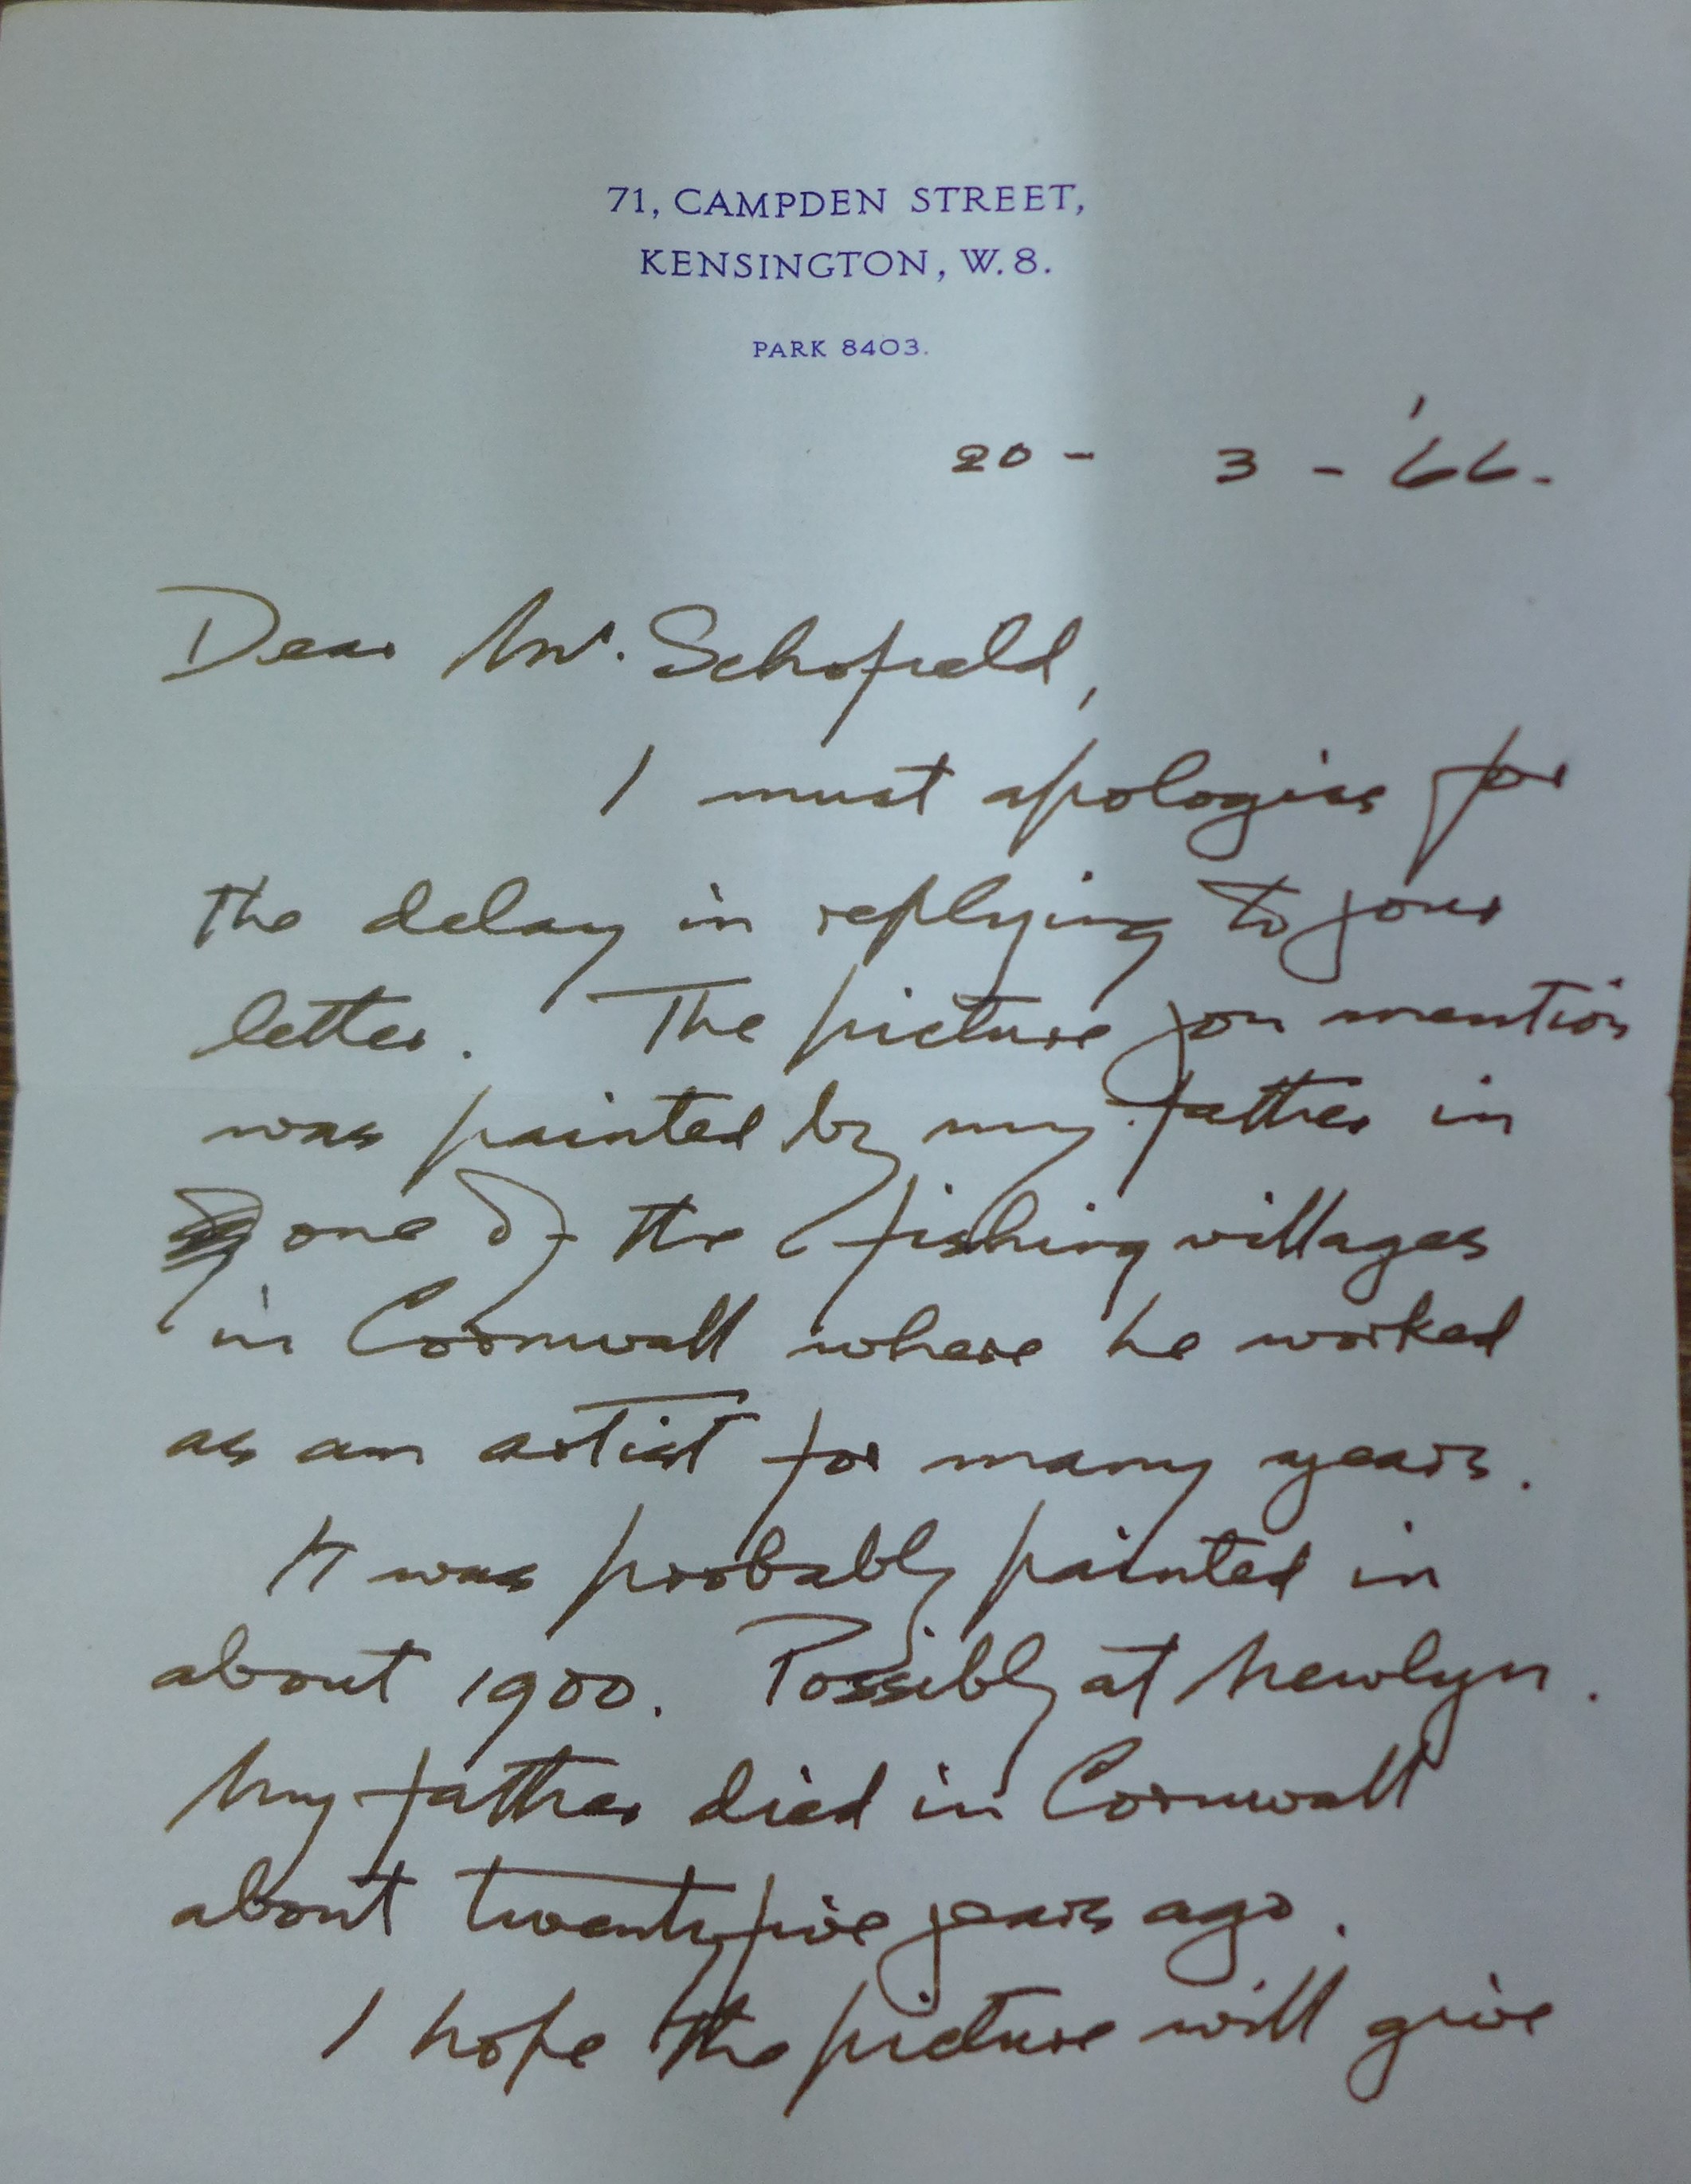 71, CAMPDEN STREET,
KENSINGTON, W.8.
PARK 8403.
20 - 3 - '66.
Dear Mr. Schofield,
I must apologise for
the delay in replying to your
letter. The picture you mention
was painted by my father in
one of the fishing villages
in Cornwall where he worked
as an artist for many years.
It was probably painted in
about 1900. Possibly at Newlyn.
My father died in Cornwall
about twenty five years ago.
I hope the picture will give